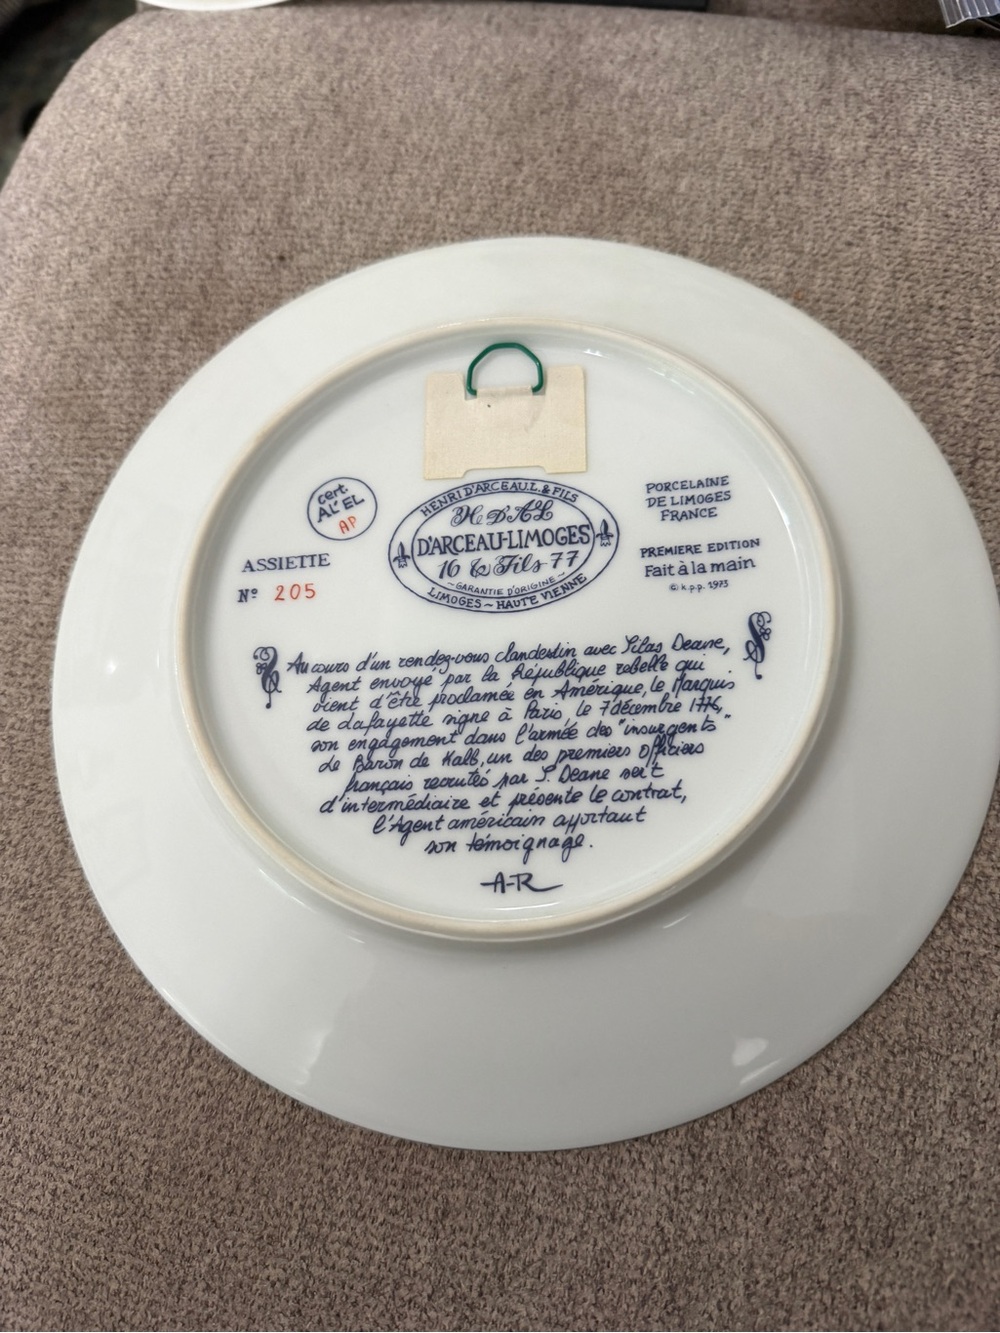 cert
AL' EL
AP
ASSIETTE
Nº 205
HENRI D'ARCEAU.L. & FILS
H D'A L
D'ARCEAU-LIMOGES
16 & Fils 77
~GARANTIE D'ORIGINE~
LIMOGES ~ HAUTE VIENNE
PORCELAINE
DE LIMOGES
FRANCE
PREMIERE EDITION
Fait à la main
© k.p.p. 1973
Au cours d'un rendez-vous clandestin avec Silas Deane,
Agent envoyé par la République rebelle qui
vient d'être proclamée en Amérique, le Marquis
de Lafayette signe à Paris, le 7 décembre 1776,
son engagement dans l'armée des "insurgents"
de Baron de Kalb, un des premiers officiers
français recrutés par S. Deane sert
d'intermédiaire et présente le contrat,
l'Agent américain apportant
son témoignage.
A-R